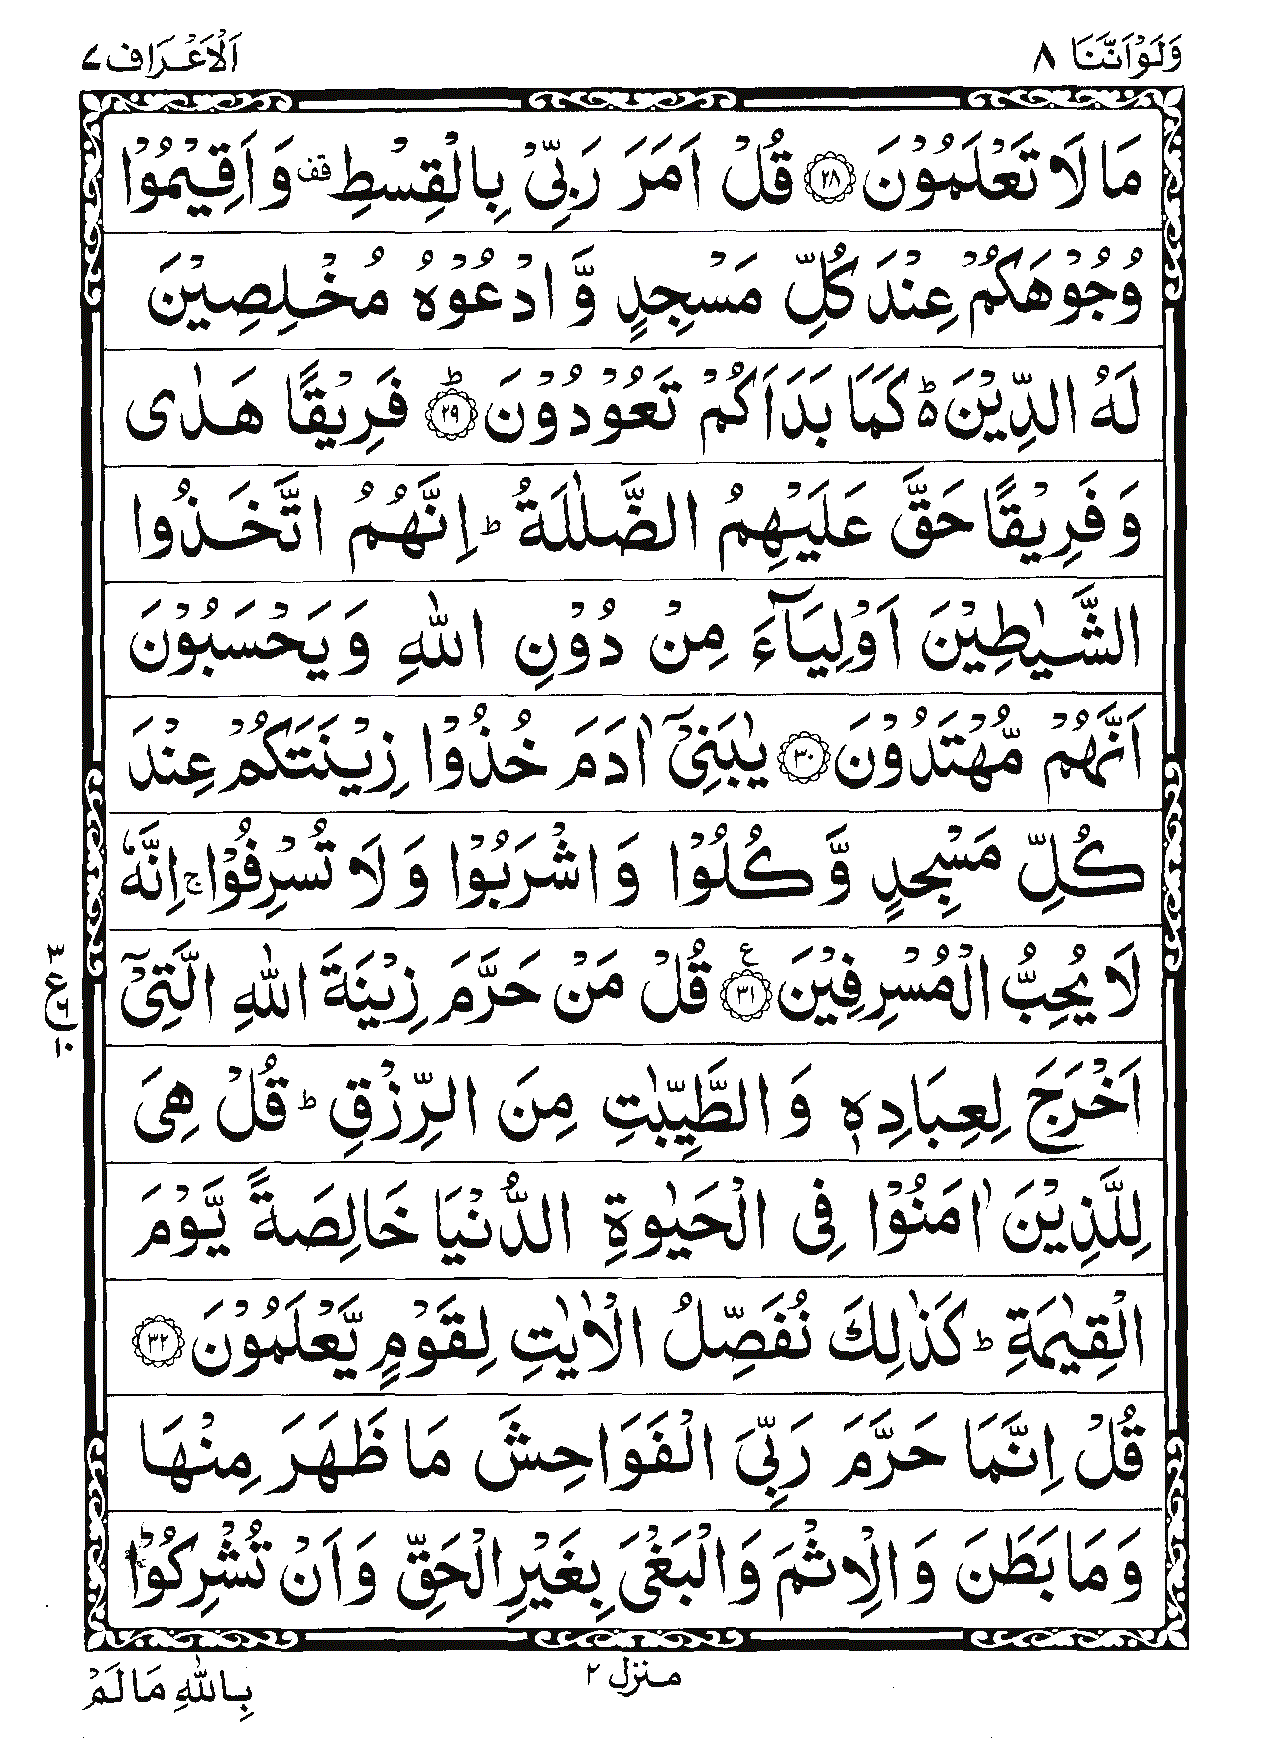 وَلَوْاَنَّنَا ٨ اَلْاَعْرَاف ٧
مَا لَا تَعْلَمُوْنَ ﴿٢٨﴾ قُلْ اَمَرَ رَبِّىْ بِالْقِسْطِ قف وَ اَقِيْمُوْا
وُجُوْهَكُمْ عِنْدَ كُلِّ مَسْجِدٍ وَّ ادْعُوْهُ مُخْلِصِيْنَ
لَهُ الدِّيْنَ ۬ؕ كَمَا بَدَاَكُمْ تَعُوْدُوْنَ ؕ﴿٢٩﴾ فَرِيْقًا هَدٰى
وَ فَرِيْقًا حَقَّ عَلَيْهِمُ الضَّلٰلَةُ ؕ اِنَّهُمُ اتَّخَذُوا
الشَّيٰطِيْنَ اَوْلِيَآءَ مِنْ دُوْنِ اللّٰهِ وَ يَحْسَبُوْنَ
اَنَّهُمْ مُّهْتَدُوْنَ ﴿٣٠﴾ يٰبَنِىْۤ اٰدَمَ خُذُوْا زِيْنَتَكُمْ عِنْدَ
كُلِّ مَسْجِدٍ وَّ كُلُوْا وَ اشْرَبُوْا وَ لَا تُسْرِفُوْا ۚ اِنَّهٗ
لَا يُحِبُّ الْمُسْرِفِيْنَ ع ﴿٣١﴾ قُلْ مَنْ حَرَّمَ زِيْنَةَ اللّٰهِ الَّتِىْۤ
٣ ع ٦ ١٠
اَخْرَجَ لِعِبَادِهٖ وَ الطَّيِّبٰتِ مِنَ الرِّزْقِ ؕ قُلْ هِىَ
لِلَّذِيْنَ اٰمَنُوْا فِى الْحَيٰوةِ الدُّنْيَا خَالِصَةً يَّوْمَ
الْقِيٰمَةِ ؕ كَذٰلِكَ نُفَصِّلُ الْاٰيٰتِ لِقَوْمٍ يَّعْلَمُوْنَ ﴿٣٢﴾
قُلْ اِنَّمَا حَرَّمَ رَبِّىَ الْفَوَاحِشَ مَا ظَهَرَ مِنْهَا
وَ مَا بَطَنَ وَ الْاِثْمَ وَ الْبَغْىَ بِغَيْرِ الْحَقِّ وَ اَنْ تُشْرِكُوْا
منزل ٢
بِاللّٰهِ مَا لَمْ